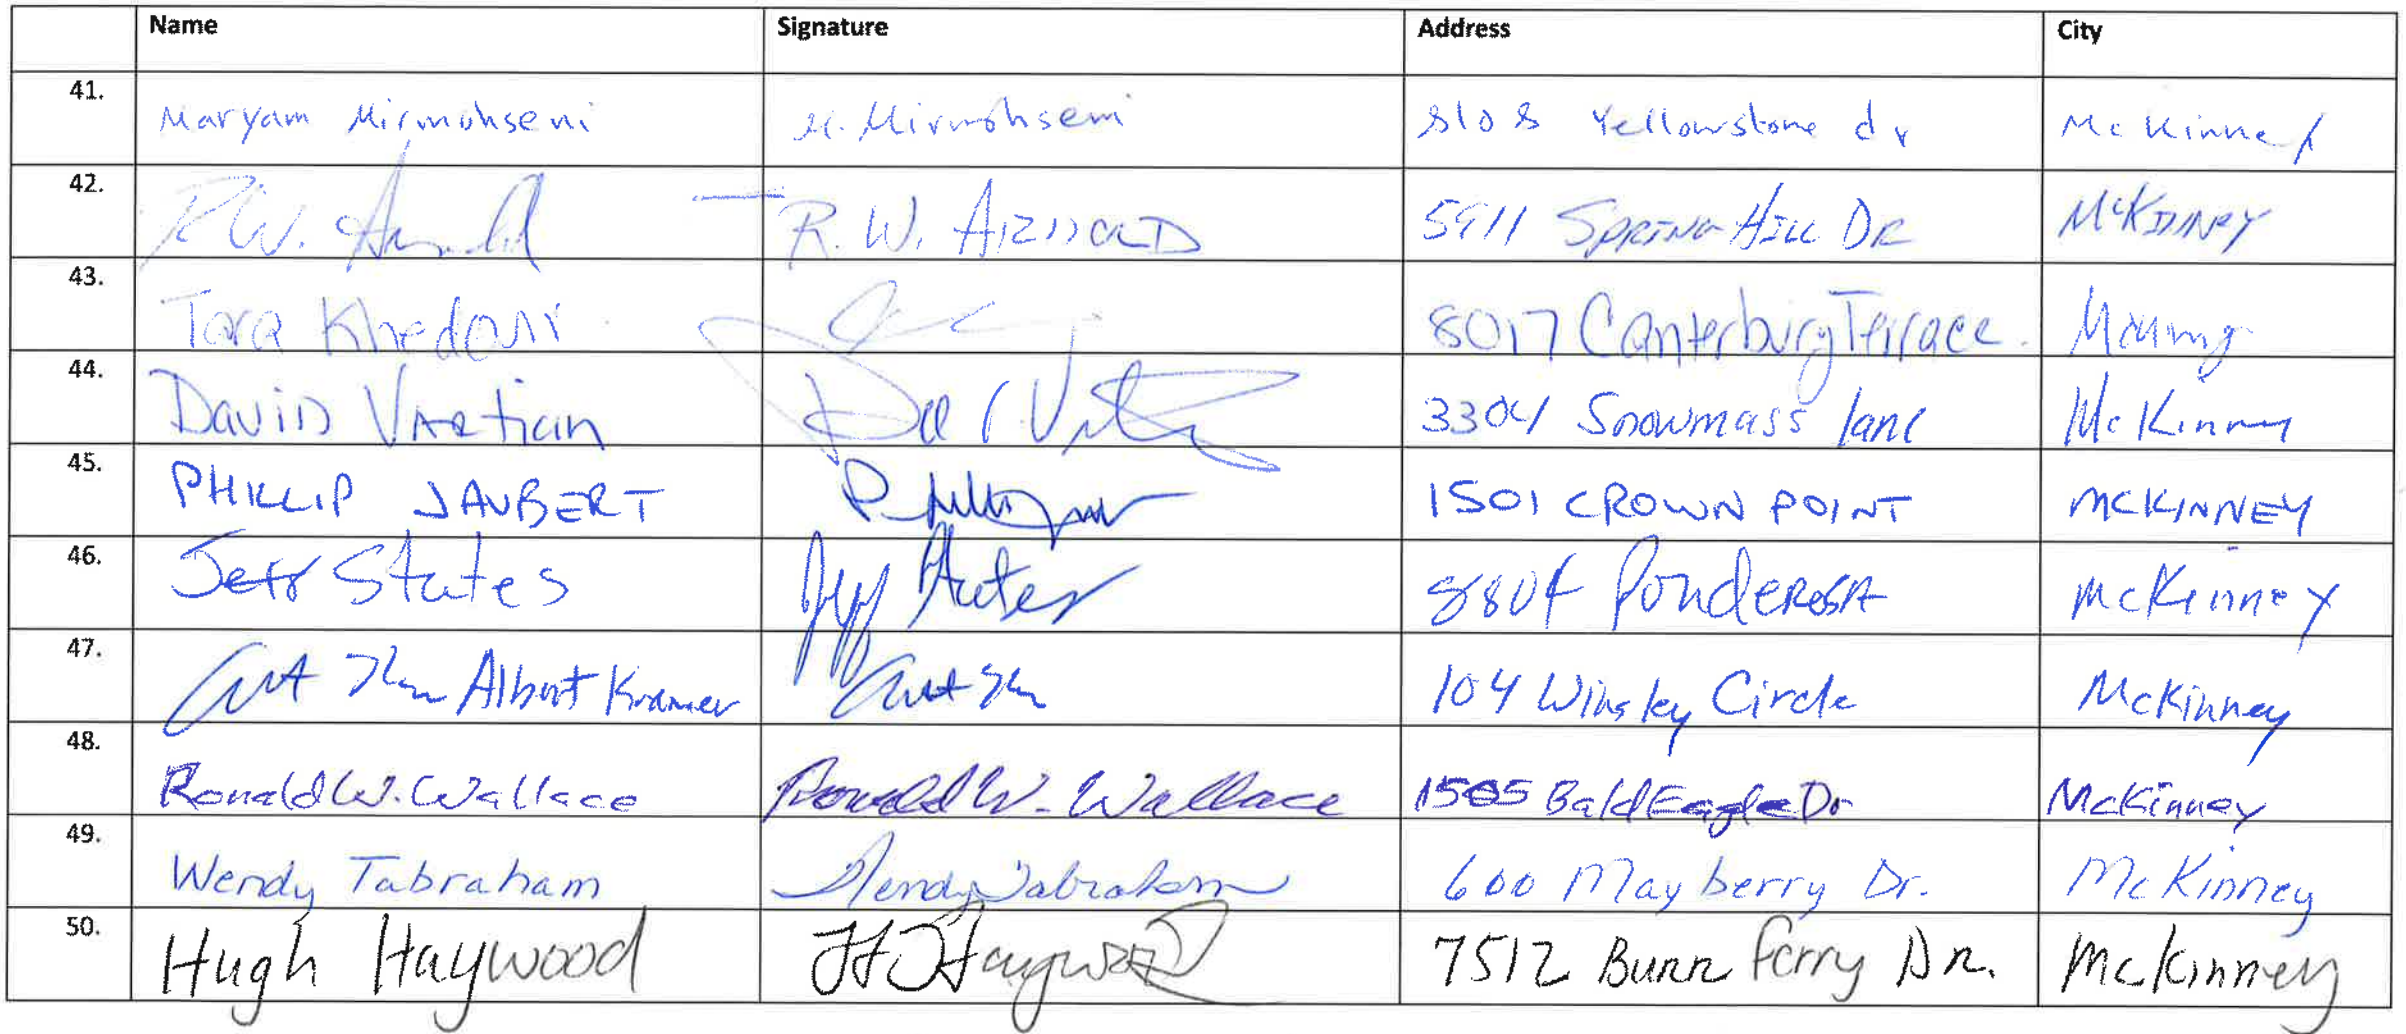 Name Signature Address City
41. Maryam Mirmohseni M. Mirmohseni 8108 Yellowstone dr McKinney
42. R.W. Arnold R. W. ARNOLD 5911 SPRING HILL DR McKINNEY
43. Tara 8017 Canterbury Terrace
44. DaviD VARtian 3304 Snowmass lane McKinney
45. PHILLIP JAUBERT 1501 CROWN POINT MCKINNEY
46. Jeff States Jeff States 8804 PondeROSA McKinney
47. Albert Kramer 104 Winsley Circle McKinney
48. Ronald W. Wallace Ronald W. Wallace 1505 Bald Eagle Dr McKinney
49. Wendy Tabraham Wendy Tabraham 600 Mayberry Dr. McKinney
50. Hugh Haywood H Haywood 7512 Burr Ferry Dr. McKinney